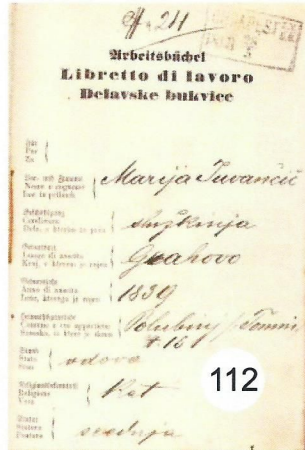 24
Arbeitsbüchel
Libretto di lavoro
Delavske bukvice
Für
Per
Za
Vor- und Zuname
Nome e cognome
Ime in priimek
Marija Juvančič
Beschäftigung
Condizione
služkinja
Geburtsort
Luogo di nascita
Kraj, v kterem je rojen
Grahovo
Geburtsjahr
Anno di nascita
Leto, kterega je rojen
1839
Heimatsgemeinde
Comune a cui appartiene
Polubinj / Tomin
# 16
Stand
Stato
Stan
vdova
Religionsbekenntniß
Religione
Vera
Kat
Statur
Statura
Postava
srednja
112